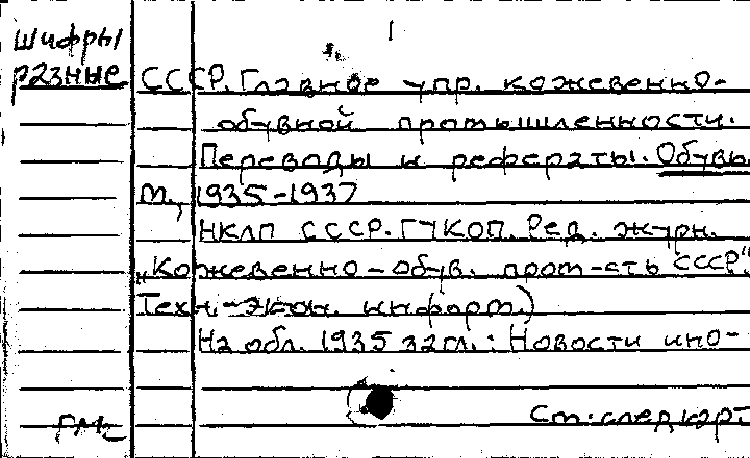 1
Шифры
разные
СССР. Главное упр. кожевенно-
обувной промышленности.
Переводы и рефераты. Обувь.
М., 1935-1937
НКЛП СССР. ГУКОП. Ред. журн.
„Кожевенно-обув. пром-сть СССР"
Техн.-экон. информ.)
На обл. 1935 загл.: Новости ино-
См. след. карт.